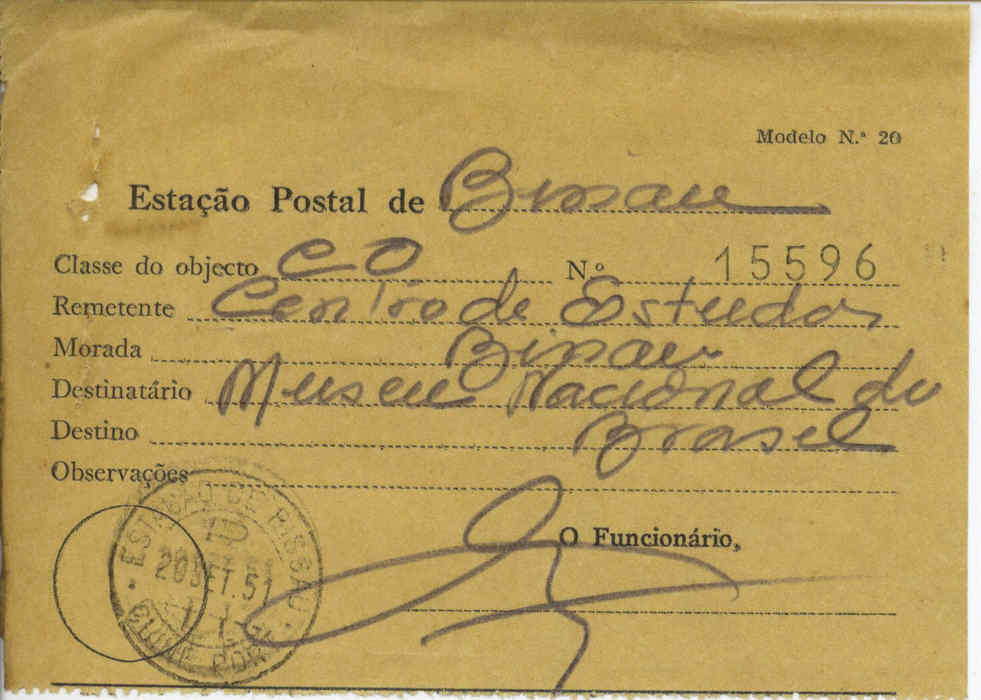 Modelo N.º 20
Estação Postal de Bissau
Classe do objecto CO N.º 15596
Remetente Centro de Estudos
Morada Bissau
Destinatário Museu Nacional do
Destino Brasil
Observações
ESTAÇÃO DE BISSAU
20 SET. 51
GUINÉ PORT.
O Funcionário,